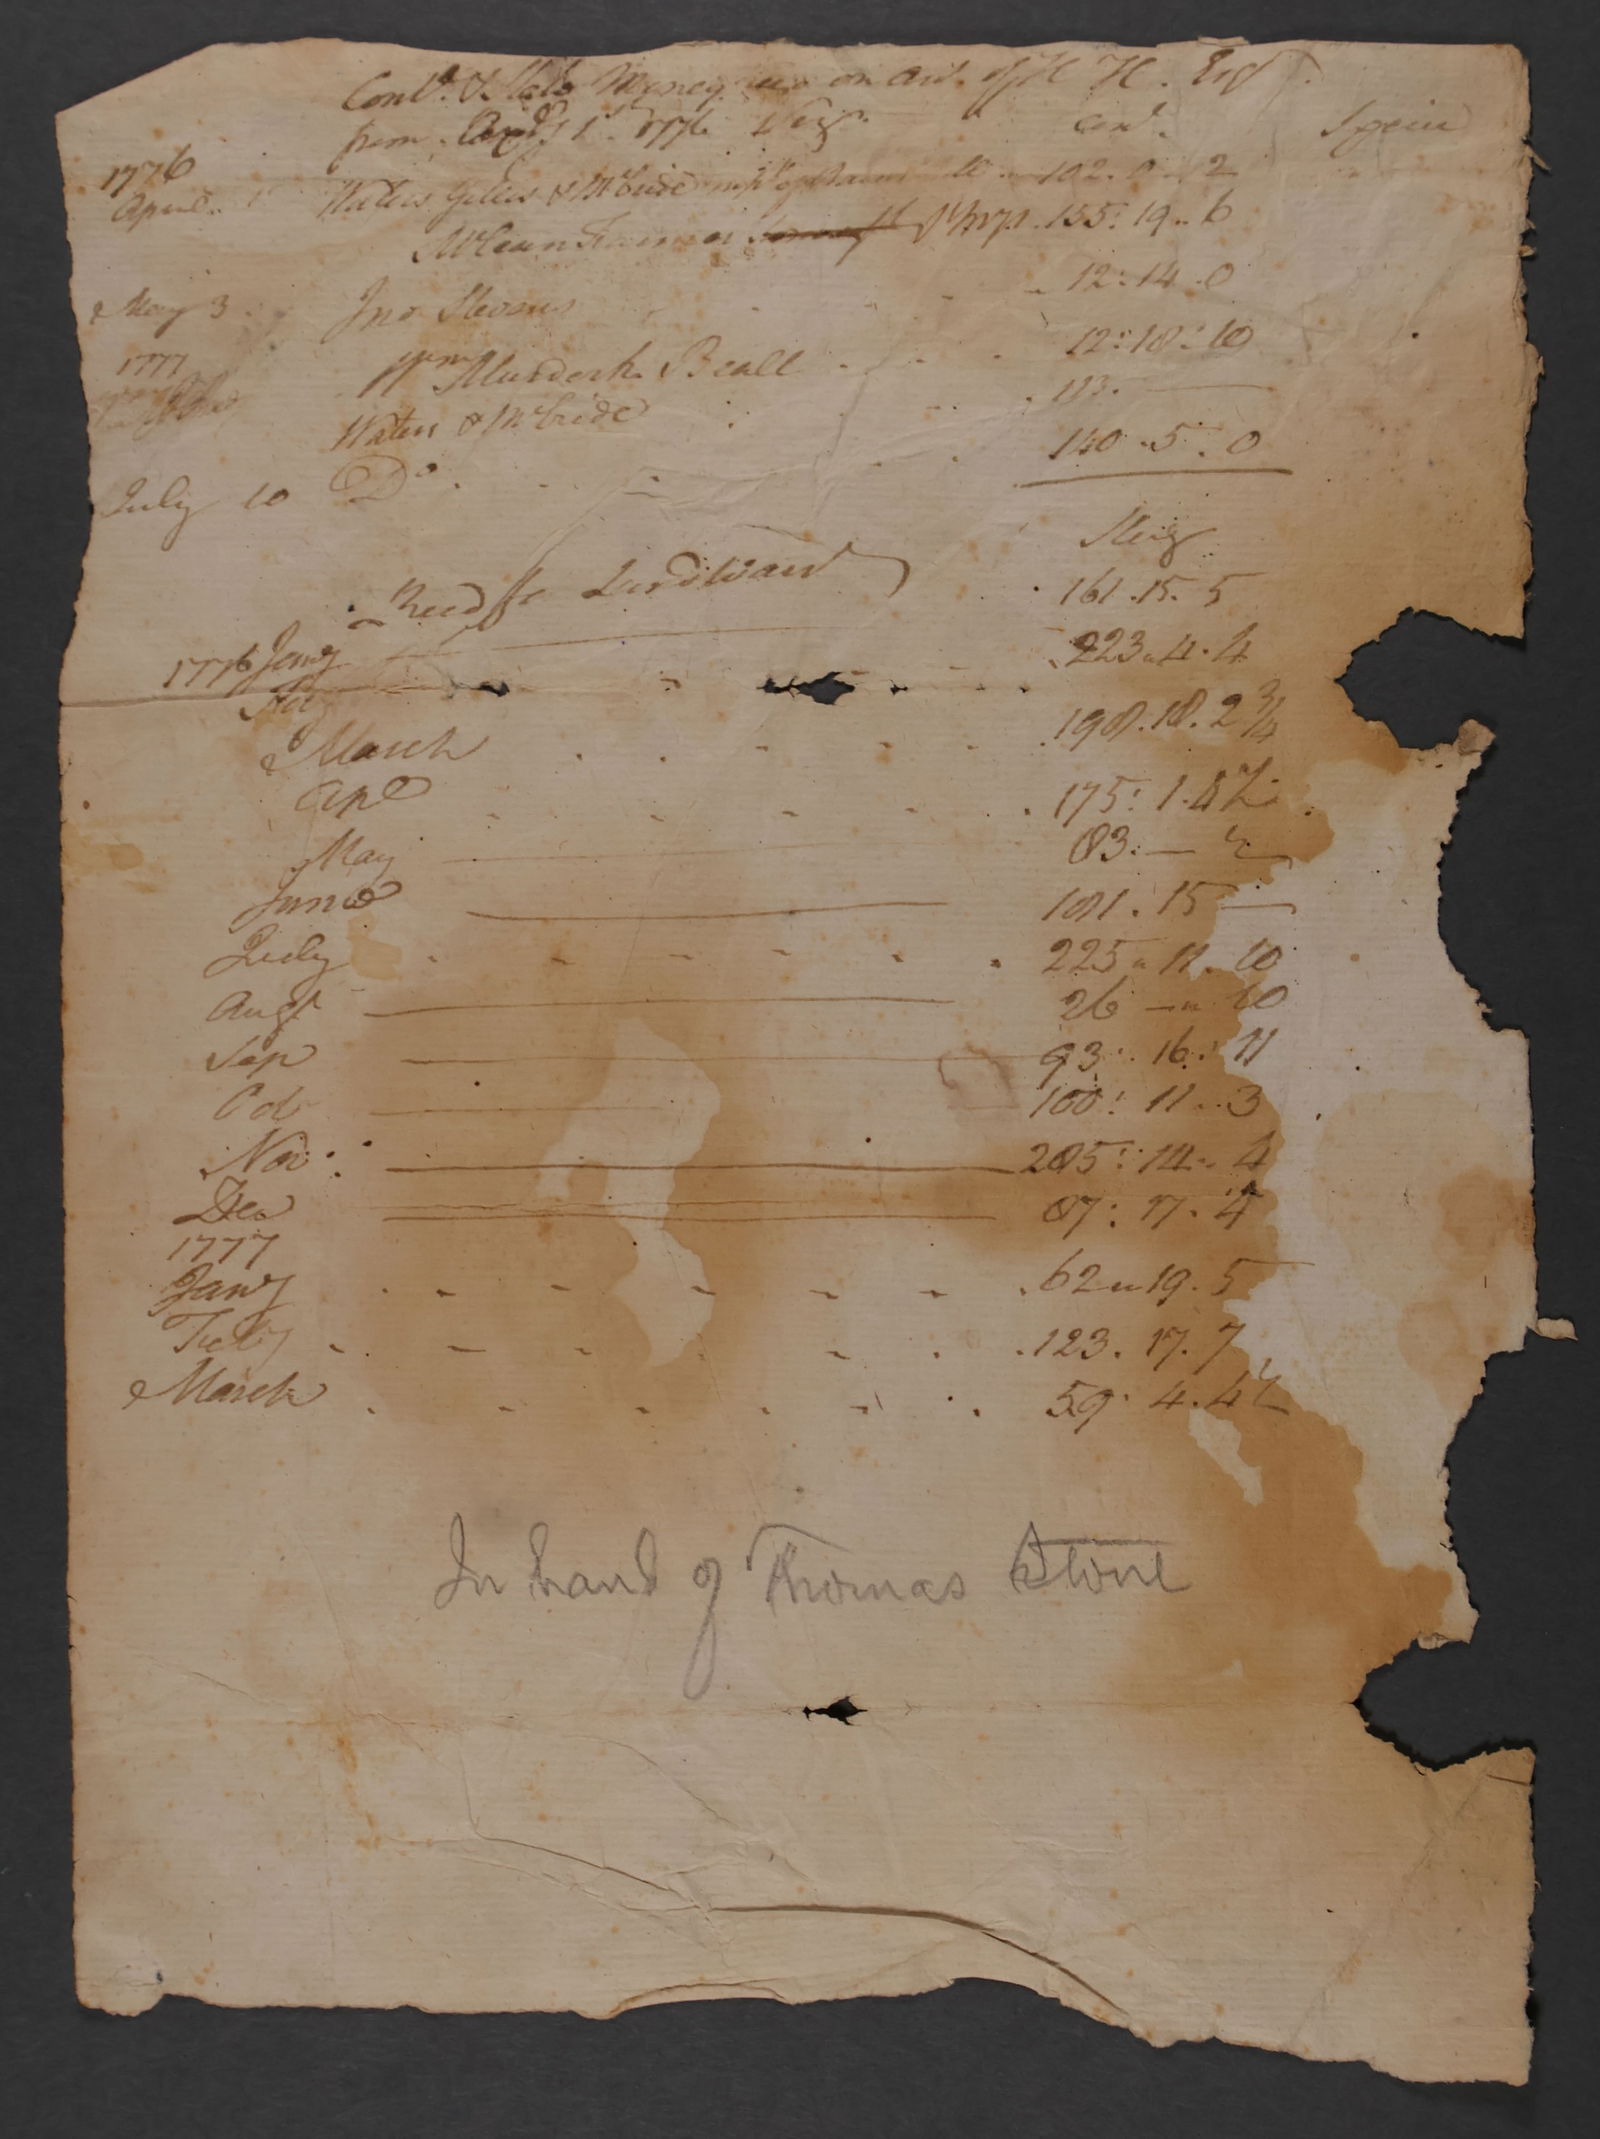 Cont. & State Money rec. on acct. of H H. Esqr.
from 1st. 1776 Viz. Cont. Specie
1776
April 1 Waters Gillis & McBride 102.0.2
McClean 155:19..6
May 3 Jno Stevens 12:14.0
1777
Wm Murdock Beall 12:18:10
Waters & McBride 113.—
July 10 Do. 140.5.0
Sterg
Recd for 161.15.5
1776 Jany 223.4.4
Feby
March 198.18.2¾
Apl 175:1.4½
May 83.—½
June 181.15—
July 225.11.10
Augt 26—10
Sep 93:16:11
Oct 100:11..3
Nov: 285:14..4
Dec 87:17.4
1777
Jany 62..19.5
Feby 123.17.7
March 59.4.4½
In hand of Thomas Stone